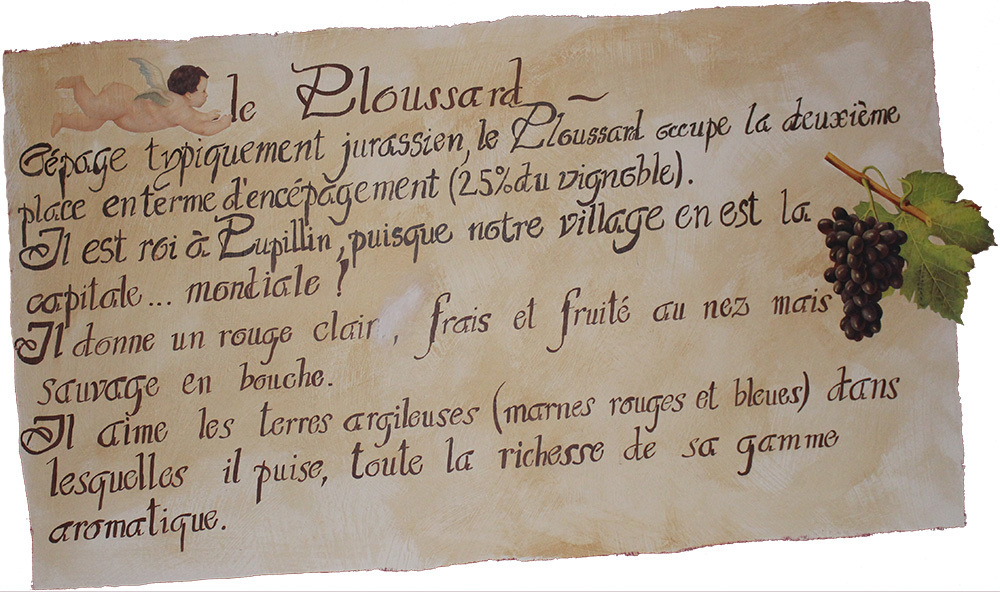 le Ploussard
Cépage typiquement jurassien, le Ploussard occupe la deuxième
place en terme d'encépagement (25% du vignoble).
Il est roi à Pupillin, puisque notre village en est la
capitale... mondiale !
Il donne un rouge clair, frais et fruité au nez mais
sauvage en bouche.
Il aime les terres argileuses (marnes rouges et bleues) dans
lesquelles il puise, toute la richesse de sa gamme
aromatique.